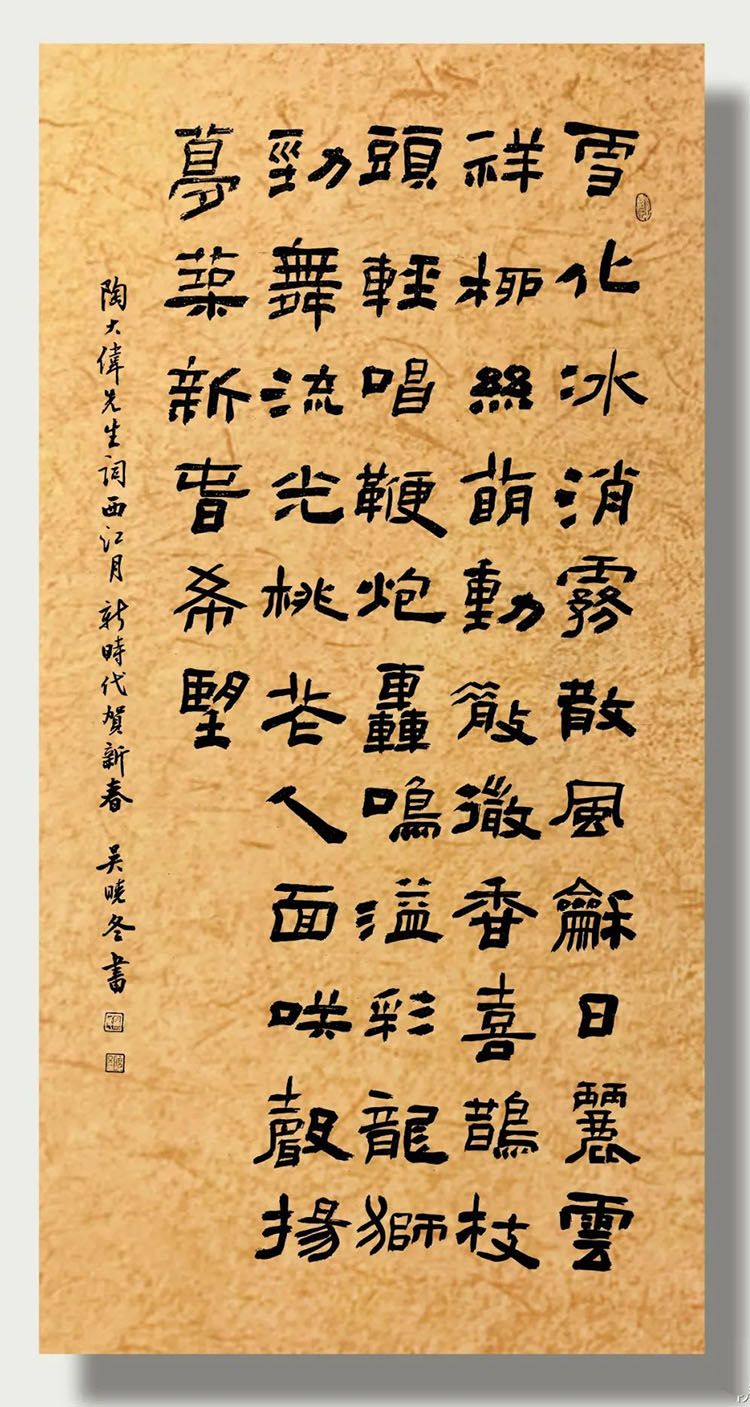 雪化冰消霧散風龢日麗雲
祥柳絲萌動散微香喜鵲枝
頭輕唱鞭炮轟鳴溢彩龍獅
勁舞流光桃花人面咲聲揚
夢築新春希望
陶大偉先生詞西江月 新時代賀新春 吴曉冬書